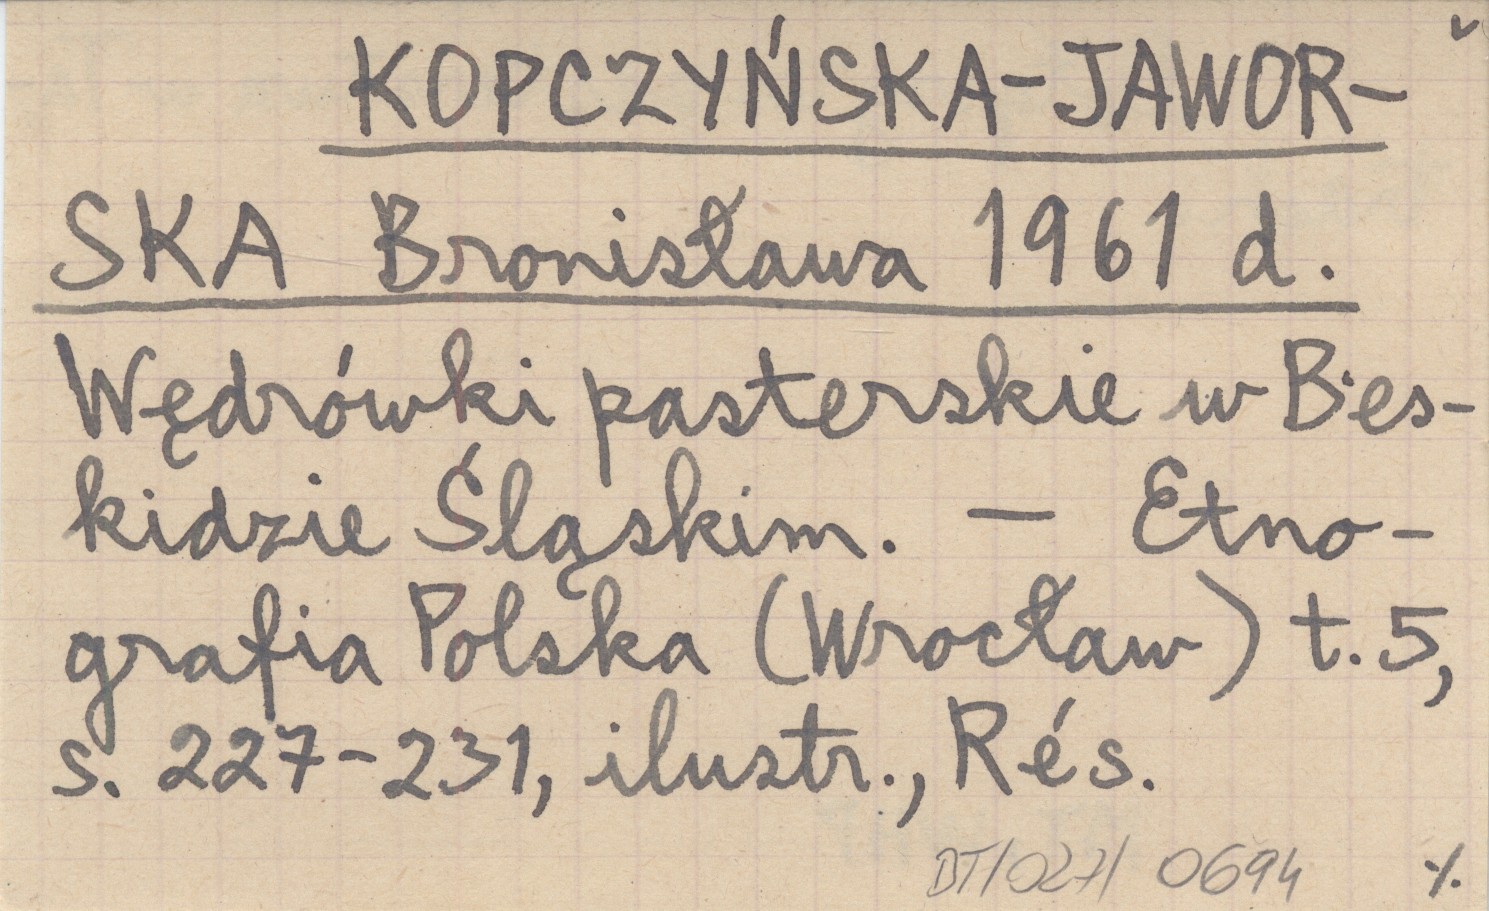 KOPCZYŃSKA-JAWOR-
SKA Bronisława 1961 d.
Wędrówki pasterskie w Bes-
kidzie Śląskim. — Etno-
grafia Polska (Wrocław) t. 5,
s. 227-231, ilustr., Rés.
BT/027/ 0694 ·/.